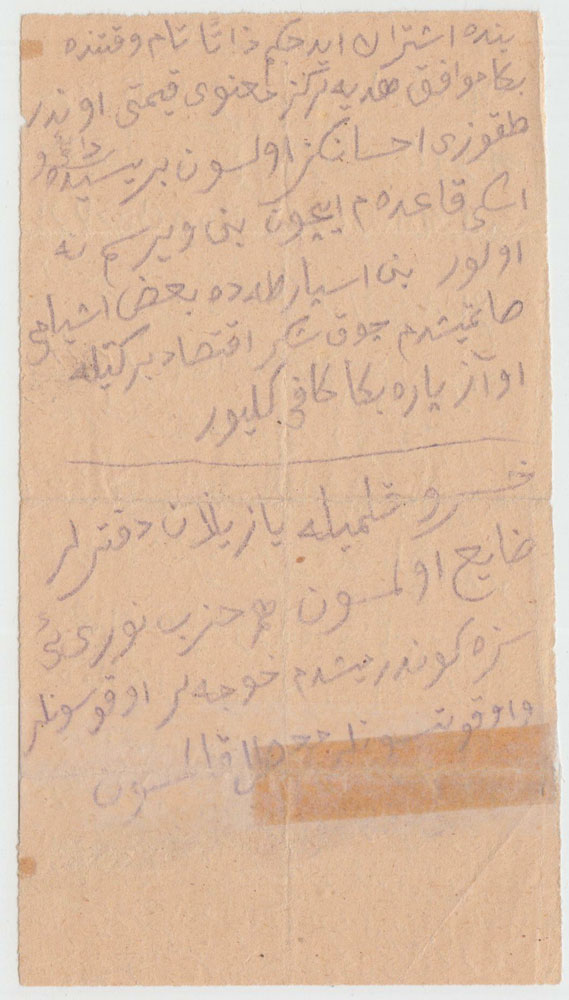 بنده اشتراك ايده جكم ذاتًا تام وقتنده
بكا موافق هديه در معنوى قيمتى اوندر
طقوزى احسانكز اولسون بريسيده
اسكى قاعده م ايچون بنى ويرسم نه
اولور بنى اسپارطه ده بعض اشيامى
صاتمشدم چوق شكر اقتصاد بركتيله
او آز پاره بكا كافى كليور
خسرو قلميله يازيلان دفترلر
ضايع اولمسون حزب نورى يى
سزه كوندرمشدم خوجه لر اوقوسونلر
و اوقوتسونلر قالمسون